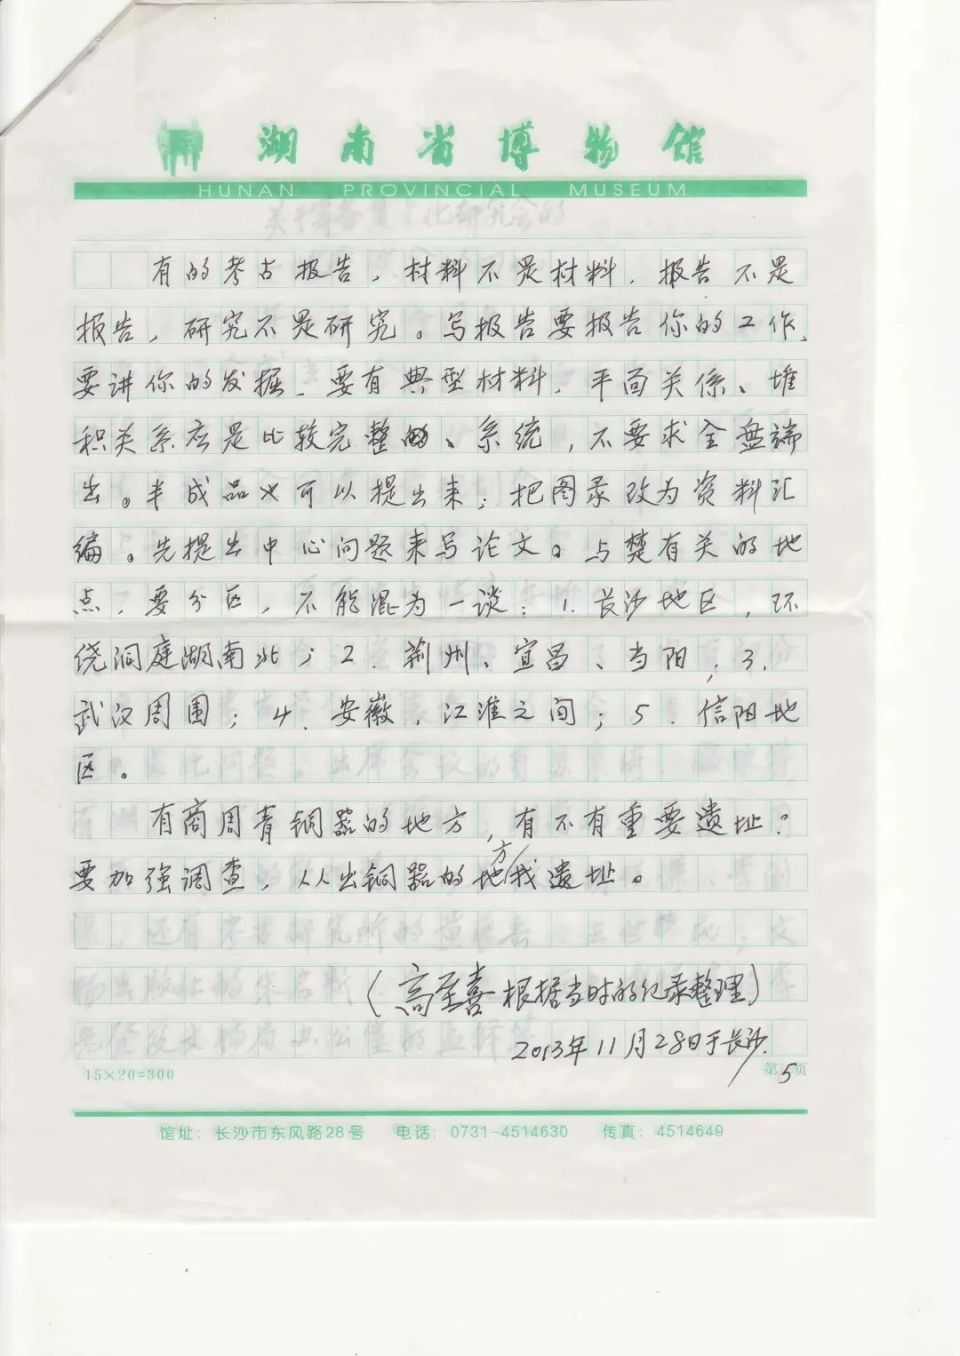 湖南省博物馆
HUNAN PROVINCIAL MUSEUM
有的考古报告，材料不是材料，报告不是
报告，研究不是研究。写报告要报告你的工作，
要讲你的发掘，要有典型材料，平面关係、堆
积关系应是比较完整的、系统，不要求全盘端
出。半成品也可以提出来；把图录改为资料汇
编。先提出中心问题来写论文。与楚有关的地
点，要分区，不能混为一谈：1.长沙地区，环
绕洞庭湖南北；2.荆州、宜昌、当阳；3.
武汉周围；4.安徽，江淮之间；5.信阳地
区。
有商周青铜器的地方，有不有重要遗址？
要加强调查，从出铜器的地方找遗址。
（高至喜根据当时的纪录整理）
2013年11月28日于长沙.
15×20=300
第5页
馆址：长沙市东风路28号 电话：0731-4514630 传真：4514649